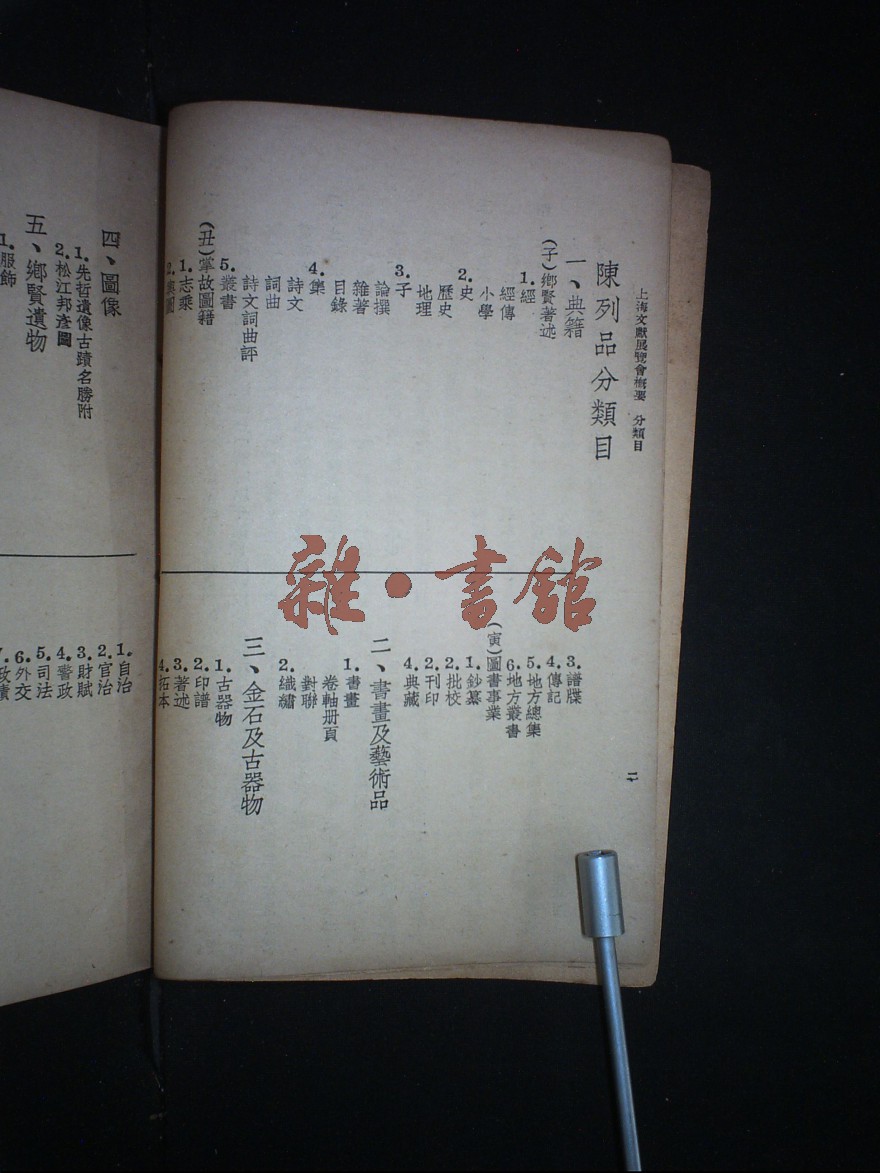 上海文獻展覽會概要　分類目
陳列品分類目
一、典籍
(子)鄉賢著述
1.經
經傳
小學
2.史
歷史
地理
3.子
論撰
雜著
目錄
4.集
詩文
詞曲
詩文詞曲評
5.叢書
(丑)掌故圖籍
1.志乘
2.輿圖
3.譜牒
4.傳記
5.地方總集
6.地方叢書
(寅)圖書事業
1.鈔纂
2.批校
2.刊印
4.典藏
二、書畫及藝術品
1.書畫
卷軸册頁
對聯
2.織繡
三、金石及古器物
1.古器物
2.印譜
3.著述
4.拓本
二
四、圖像
1.先哲遺像古蹟名勝附
2.松江邦彥圖
五、鄉賢遺物
1.服飾
1.自治
2.官治
3.財賦
4.警政
5.司法
6.外交
7.政績
雜·書館